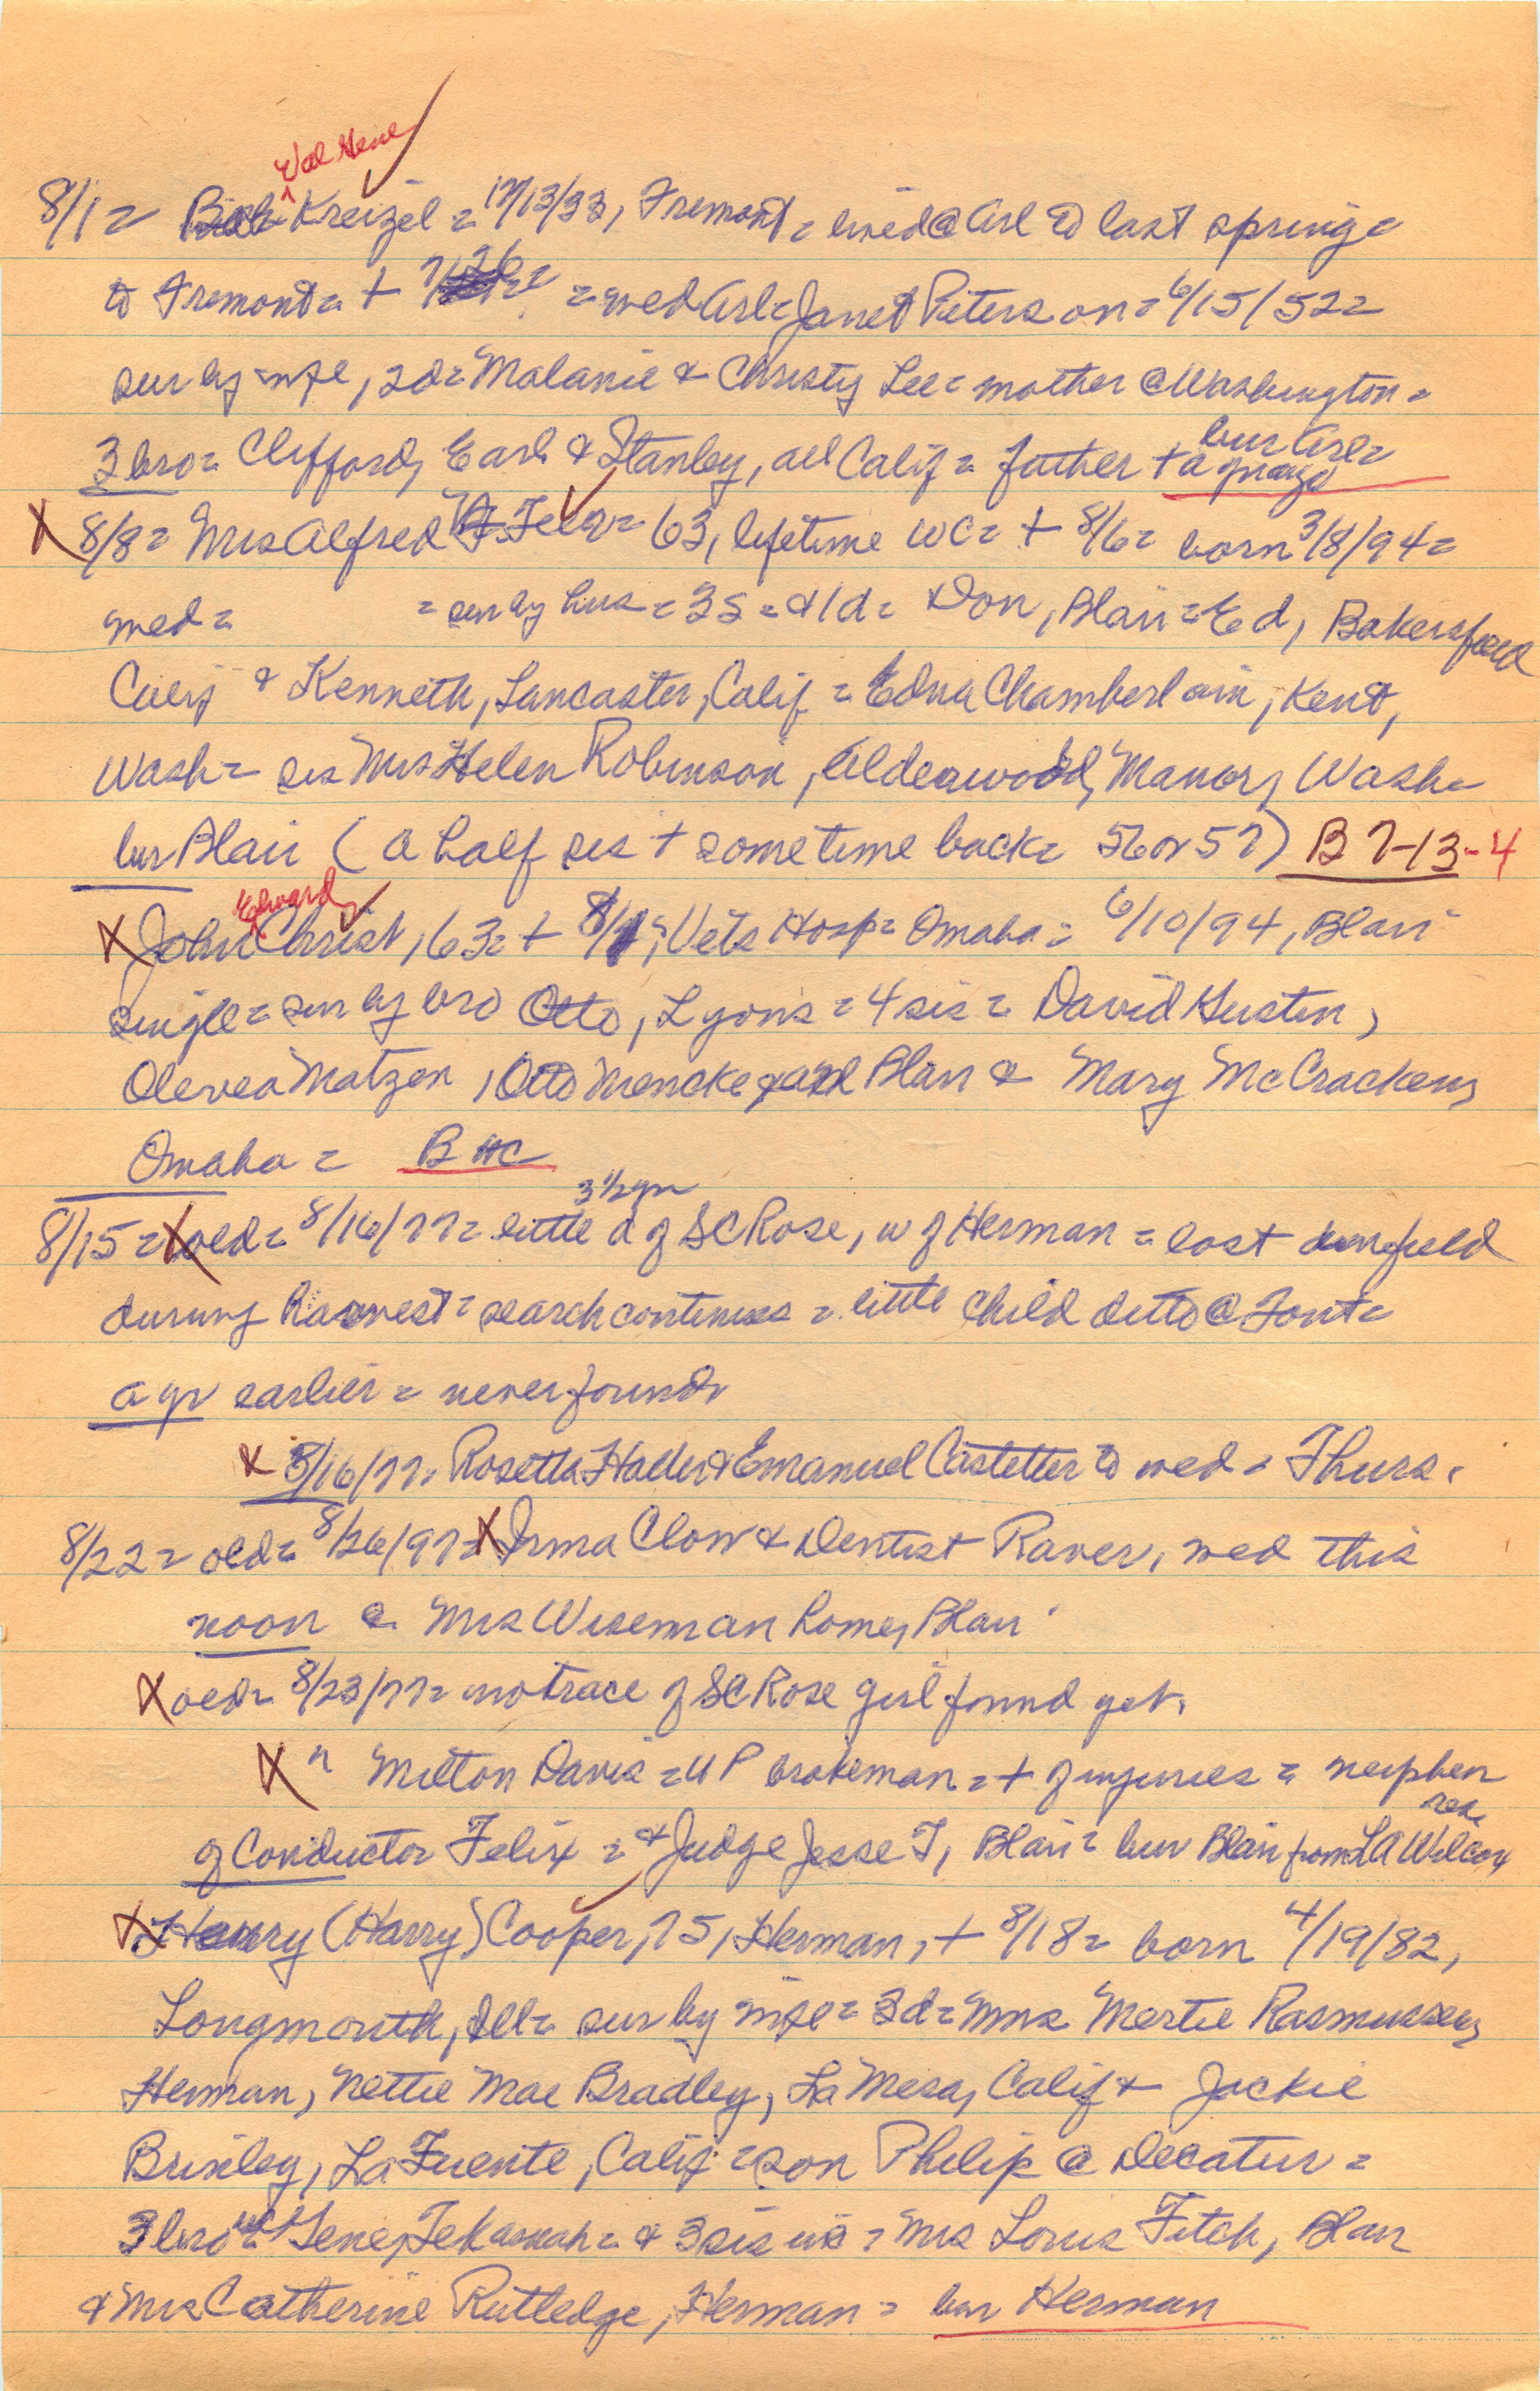 Val Gene
8/1 = Bill Kreizel = 12/13/33, Fremont = lived @ Arl to last spring =
to Fremont = + 7/26 = wed Arl = Janet Peterson = 6/15/52 =
sur by wife, 2d = Malanie & Christy Lee = mother @ Washington =
3 bro = Clifford, Earl & Stanley, all Calif = father + a yr ago bur Arl =
X 8/8 = Mrs Alfred = 63, lifetime WC = + 8/6 = born 3/8/94 =
wed = = sur by hus = 3s = & 1d = Don, Blair = Ed, Bakersfield
Calif & Kenneth, Lancaster, Calif = Edna Chamberlain, Kent,
Wash = sis Mrs Helen Robinson, Alderwood, Manor, Wash =
bur Blair (a half sis + sometime back = 56 or 57) B 7-13-4
Edward
X John Christ, 63 = + 8/1 =, Vets Hosp = Omaha = 6/10/94, Blair
single = sur by bro Otto, Lyons = 4 sis = David Gustin,
Olevea Matzen, Otto Mencke & all Blair & Mary McCracken,
Omaha = B HC
3 1/2 yr
8/15 = X old = 8/16/77 = little d of SC Rose, w of Herman = lost cornfield
during harvest = search continues = little child ditto @ Font =
a yr earlier = never found
X 8/16/77 = Rosetta Haller & Emanuel Castetter to wed = Thurs.
8/22 = old = 8/26/97 = X Irma Clow & Dentist Raver, wed this
noon @ Mrs Wiseman home, Blair
X old = 8/23/77 = no trace of SC Rose girl found yet.
X " Milton Davis = UP brakeman = + of injuries = nephew
of Conductor Felix = & Judge Jesse T, Blair = bur Blair from LA Wilcox res.
X Henry (Harry) Cooper, 75, Herman, + 8/18 = born 4/19/82,
Longmonth, Ill = sur by wife = 3d = Mrs Mertie Rasmussen,
Herman, Nettie Mae Bradley, La Mesa, Calif & Jackie
Brinley, La Fuente, Calif = son Philip @ Decatur =
3 bro = Gene, Tekamah = & 3 sis = Mrs Louis Fitch, Blair
& Mrs Catherine Rutledge, Herman = bur Herman